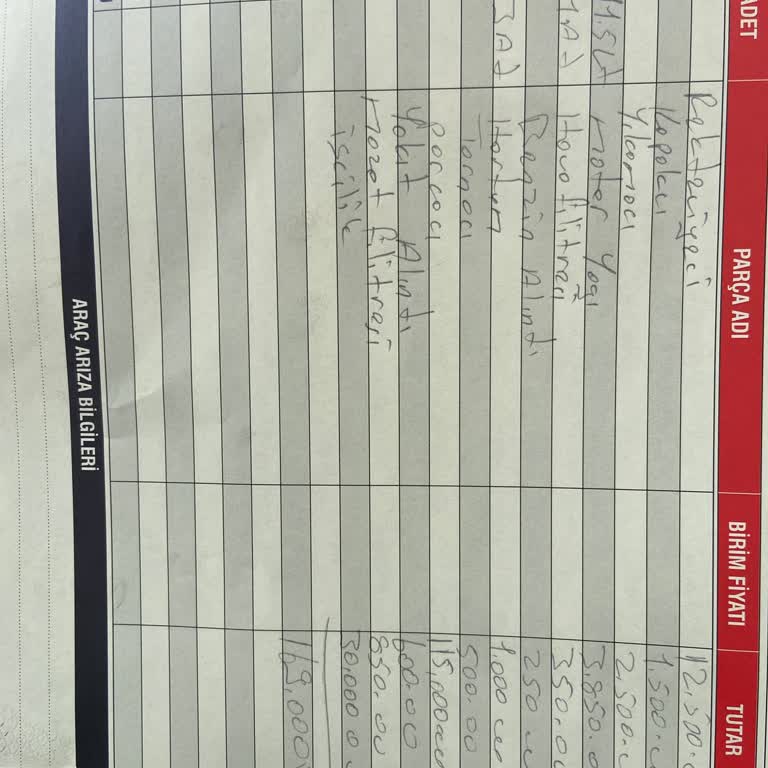 ADET PARÇA ADI BİRİM FİYATI TUTAR
12.500.
Kapakcı 1.500
Yıkamacı 2.500
11.5 Lt motor Yağı 3.850.0
1.AD Hava filitresi 350.0
Benzin Alındı 250
3 AD Hortum 1.000
Tornacı 500.00
Parçacı 115.000
Yakıt Alındı 600.00
mazot filitresi 850.00
işçilik 30.000
169.000
ARAÇ ARIZA BİLGİLERİ